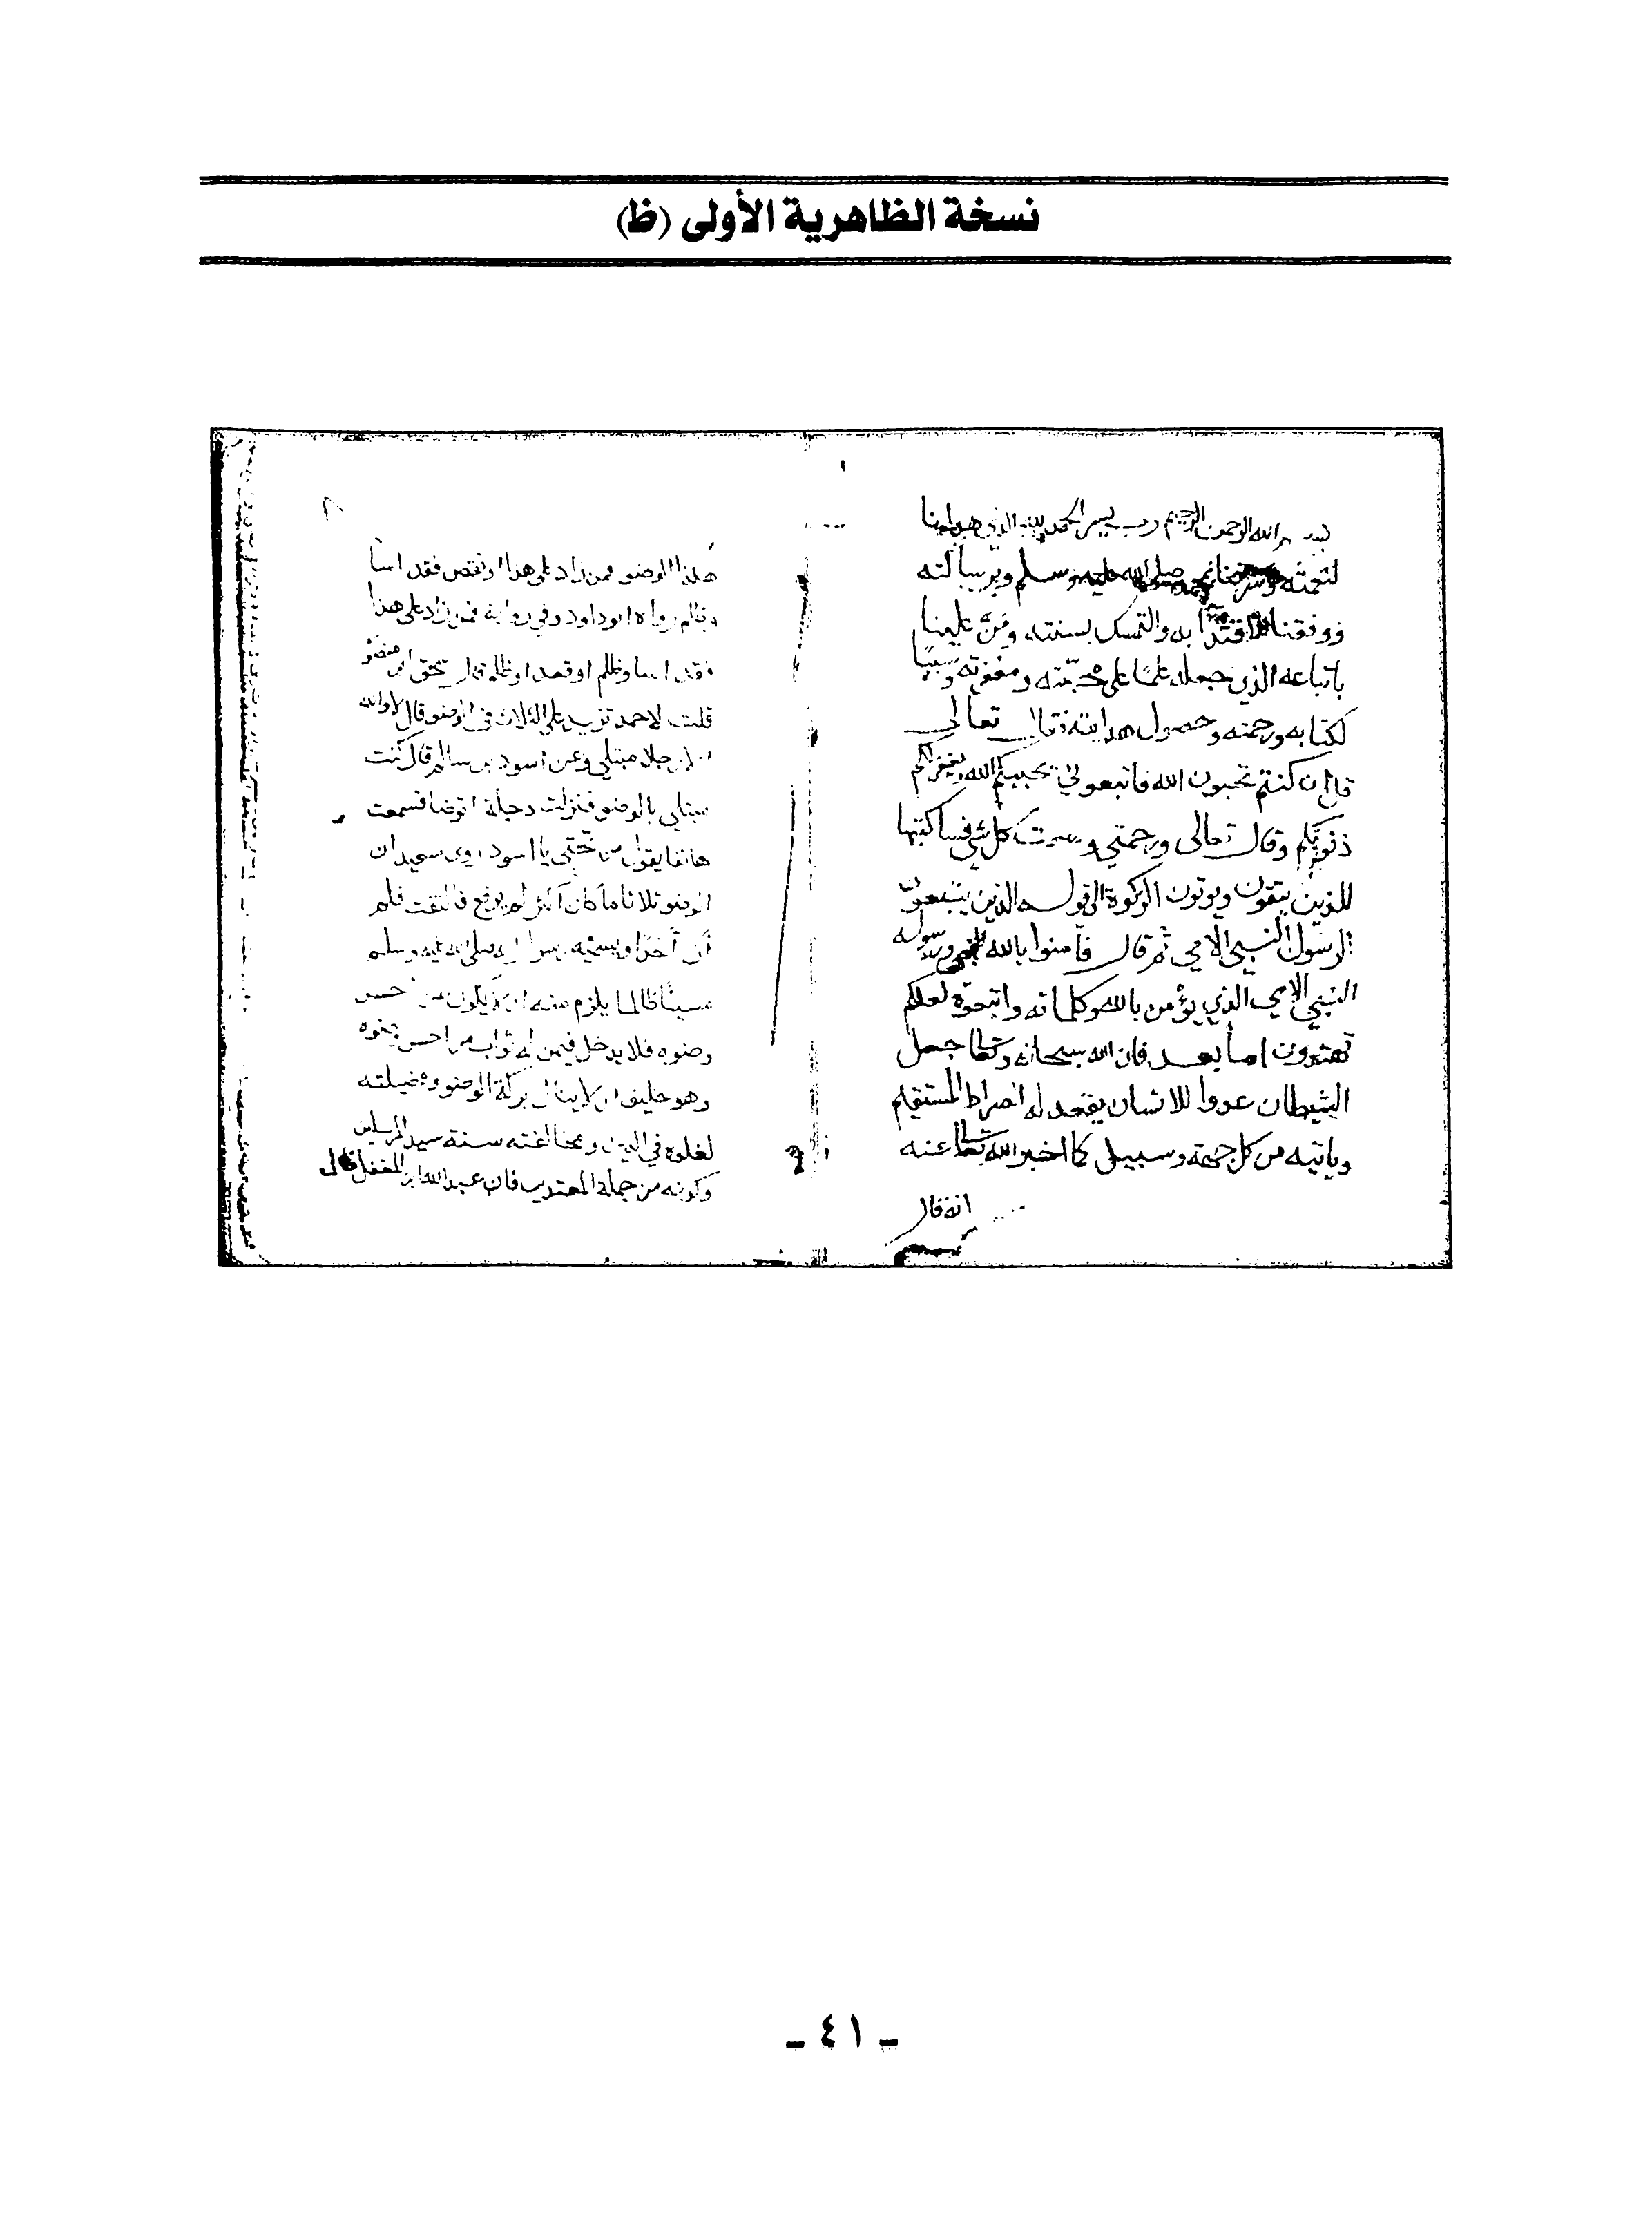 نسخة الظاهرية الأولى (ظ)
بسم الله الرحمن الرحيم رب يسر الحمد لله الذي هدانا
لنعمته وشرفنا بمحمد صلى الله عليه وسلم وبرسالته
ووفقنا للاقتداء به والتمسك بسنته، ومَنَّ علينا
باتباعه الذي جعله علمًا على محبّته ومغفرته وسببًا
لكتابه ورحمته وحصول هدايته فقال تعالى
قل ان كنتم تحبون الله فاتبعوني يحببكم الله ويغفر لكم
ذنوبكم وقال تعالى ورحمتي وسعت كل شي فسأكتبها
للذين يتقون ويوتون الزكوة الى قوله الذين يتبعون
الرسول النبي الامي ثم قال فآمنوا بالله ورسوله
النبي الامي الذي يؤمن بالله وكلماته واتبعوه لعلكم
تهتدون اما بعد فان الله سبحانه وتعالى جعل
الشيطان عدوا للانسان يقعد له الصراط المستقيم
وياتيه من كل جهة وسبيل كما اخبر الله تعالى عنه
انه قال
هكذا الوضو فمن زاد على هذا او نقص فقد اسا
وظلم رواه ابو داود وفي رواية فمن زاد على هذا
فقد اسا وظلم او تعدا وظلم قال اسحق ابن منصور
قلت لاحمد تزيد على الثلاث في الوضو قال لا والله
الا رجل مبتلي وعن اسود بن سالم قال كنت
مبتلي بالوضو فنزلت دجلة اتوضا فسمعت
هاتفا يقول من تحتي يا اسود روى سعيد ان
الوضو ثلاثا ما كان اكثر لم يرفع فالتفت فلم
أرَ أحدًا ويسميه رسول الله صلى الله عليه وسلم
مسيئًا ظالما يلزم منه ان لا يكون من احسن
وضوه فلا يدخل فيمن له ثواب من احسن وضوه
وهو خليق ان لا ينال بركة الوضو وفضيلته
لغلوه في الدين ومخالفته سنة سيد المرسلين
وكونه من جملة المعتدين فان عبد الله ابن المغفل قال
- ٤١ -